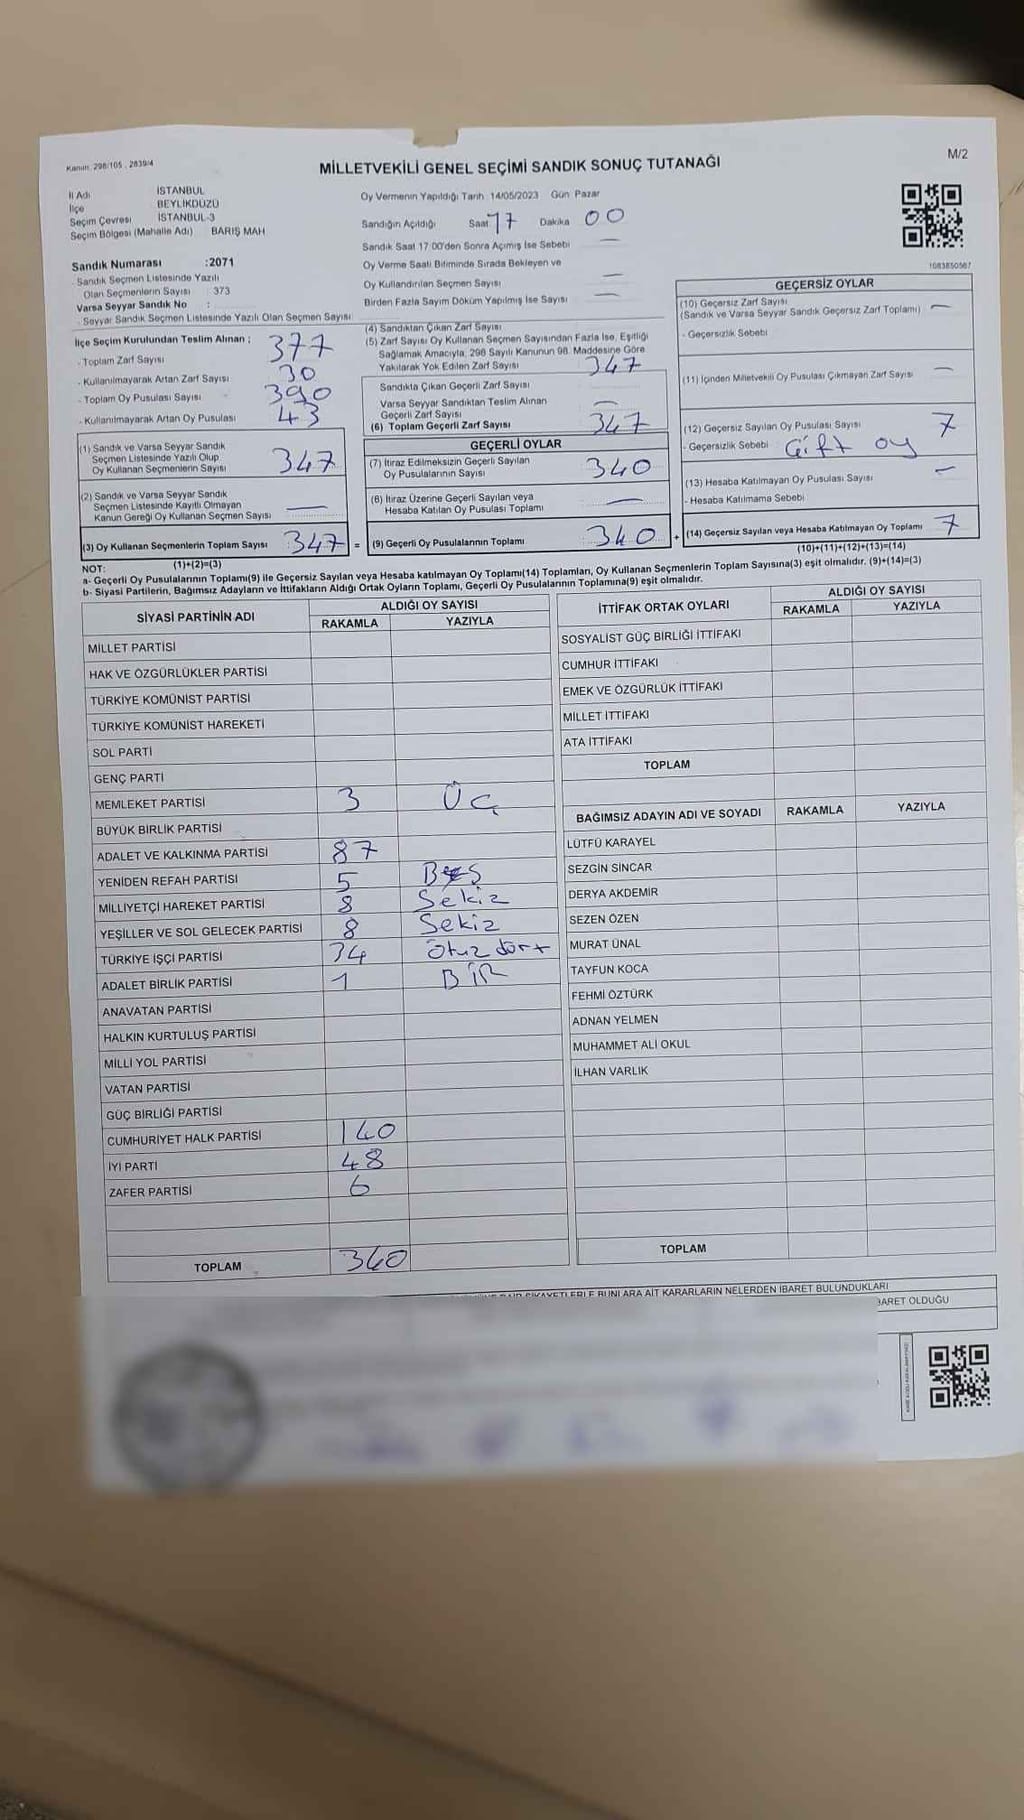 Kanun: 298/105 , 2839/4
MİLLETVEKİLİ GENEL SEÇİMİ SANDIK SONUÇ TUTANAĞI
M/2
İl Adı İSTANBUL
İlçe BEYLİKDÜZÜ
Seçim Çevresi İSTANBUL-3
Seçim Bölgesi (Mahalle Adı) BARIŞ MAH
Sandık Numarası :2071
- Sandık Seçmen Listesinde Yazılı
Olan Seçmenlerin Sayısı : 373
Varsa Seyyar Sandık No :
- Seyyar Sandık Seçmen Listesinde Yazılı Olan Seçmen Sayısı
Oy Vermenin Yapıldığı Tarih 14/05/2023 Gün Pazar
Sandığın Açıldığı Saat 17 Dakika 00
Sandık Saat 17:00'den Sonra Açımış İse Sebebi —
Oy Verme Saati Bitiminde Sırada Bekleyen ve
Oy Kullandırılan Seçmen Sayısı —
Birden Fazla Sayım Döküm Yapılmış İse Sayısı —
1083850567
İlçe Seçim Kurulundan Teslim Alınan ;
- Toplam Zarf Sayısı 377
- Kullanılmayarak Artan Zarf Sayısı 30
- Toplam Oy Pusulası Sayısı 390
- Kullanılmayarak Artan Oy Pusulası 43
(1) Sandık ve Varsa Seyyar Sandık
Seçmen Listesinde Yazılı Olup
Oy Kullanan Seçmenlerin Sayısı 347
(2) Sandık ve Varsa Seyyar Sandık
Seçmen Listesinde Kayıtlı Olmayan
Kanun Gereği Oy Kullanan Seçmen Sayısı —
(3) Oy Kullanan Seçmenlerin Toplam Sayısı 347 =
(1)+(2)=(3)
(4) Sandıktan Çıkan Zarf Sayısı
(5) Zarf Sayısı Oy Kullanan Seçmen Sayısından Fazla İse, Eşitliği
Sağlamak Amacıyla, 298 Sayılı Kanunun 98. Maddesine Göre
Yakılarak Yok Edilen Zarf Sayısı 347
Sandıkta Çıkan Geçerli Zarf Sayısı
Varsa Seyyar Sandıktan Teslim Alınan
Geçerli Zarf Sayısı —
(6) Toplam Geçerli Zarf Sayısı 347
GEÇERLİ OYLAR
(7) İtiraz Edilmeksizin Geçerli Sayılan
Oy Pusulalarının Sayısı 340
(8) İtiraz Üzerine Geçerli Sayılan veya
Hesaba Katılan Oy Pusulası Toplamı —
(9) Geçerli Oy Pusulalarının Toplamı 340 +
GEÇERSİZ OYLAR
(10) Geçersiz Zarf Sayısı
(Sandık ve Varsa Seyyar Sandık Geçersiz Zarf Toplamı) —
- Geçersizlik Sebebi
(11) İçinden Milletvekili Oy Pusulası Çıkmayan Zarf Sayısı —
(12) Geçersiz Sayılan Oy Pusulası Sayısı 7
- Geçersizlik Sebebi Çift oy
(13) Hesaba Katılmayan Oy Pusulası Sayısı —
- Hesaba Katılmama Sebebi
(14) Geçersiz Sayılan veya Hesaba Katılmayan Oy Toplamı 7
(10)+(11)+(12)+(13)=(14)
NOT:
a- Geçerli Oy Pusulalarının Toplamı(9) ile Geçersiz Sayılan veya Hesaba katılmayan Oy Toplamı(14) Toplamları, Oy Kullanan Seçmenlerin Toplam Sayısına(3) eşit olmalıdır. (9)+(14)=(3)
b- Siyasi Partilerin, Bağımsız Adayların ve İttifakların Aldığı Ortak Oyların Toplamı, Geçerli Oy Pusulalarının Toplamına(9) eşit olmalıdır.
SİYASİ PARTİNİN ADI
ALDIĞI OY SAYISI
RAKAMLA YAZIYLA
MİLLET PARTİSİ
HAK VE ÖZGÜRLÜKLER PARTİSİ
TÜRKİYE KOMÜNİST PARTİSİ
TÜRKİYE KOMÜNİST HAREKETİ
SOL PARTİ
GENÇ PARTİ
MEMLEKET PARTİSİ 3 Üç
BÜYÜK BİRLİK PARTİSİ
ADALET VE KALKINMA PARTİSİ 87
YENİDEN REFAH PARTİSİ 5 Beş
MİLLİYETÇİ HAREKET PARTİSİ 8 Sekiz
YEŞİLLER VE SOL GELECEK PARTİSİ 8 Sekiz
TÜRKİYE İŞÇİ PARTİSİ 34 Otuz dört
ADALET BİRLİK PARTİSİ 1 BİR
ANAVATAN PARTİSİ
HALKIN KURTULUŞ PARTİSİ
MİLLİ YOL PARTİSİ
VATAN PARTİSİ
GÜÇ BİRLİĞİ PARTİSİ
CUMHURİYET HALK PARTİSİ 140
İYİ PARTİ 48
ZAFER PARTİSİ 6
TOPLAM 340
İTTİFAK ORTAK OYLARI
ALDIĞI OY SAYISI
RAKAMLA YAZIYLA
SOSYALİST GÜÇ BİRLİĞİ İTTİFAKI
CUMHUR İTTİFAKI
EMEK VE ÖZGÜRLÜK İTTİFAKI
MİLLET İTTİFAKI
ATA İTTİFAKI
TOPLAM
BAĞIMSIZ ADAYIN ADI VE SOYADI RAKAMLA YAZIYLA
LÜTFÜ KARAYEL
SEZGİN SİNCAR
DERYA AKDEMİR
SEZEN ÖZEN
MURAT ÜNAL
TAYFUN KOCA
FEHMİ ÖZTÜRK
ADNAN YELMEN
MUHAMMET ALİ OKUL
İLHAN VARLIK
TOPLAM
BUNLARA AİT KARARLARIN NELERDEN İBARET BULUNDUKLARI
OLDUĞU